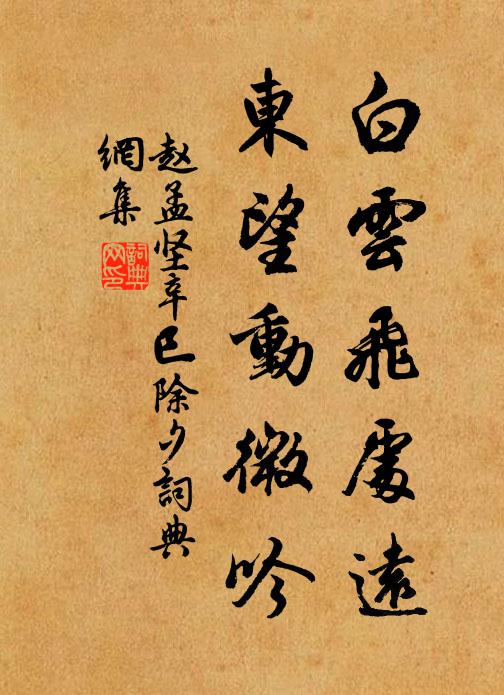 白雲飛處遠
東望動微吟
赵孟坚辛巳除夕詞典
網集
詞典
网印